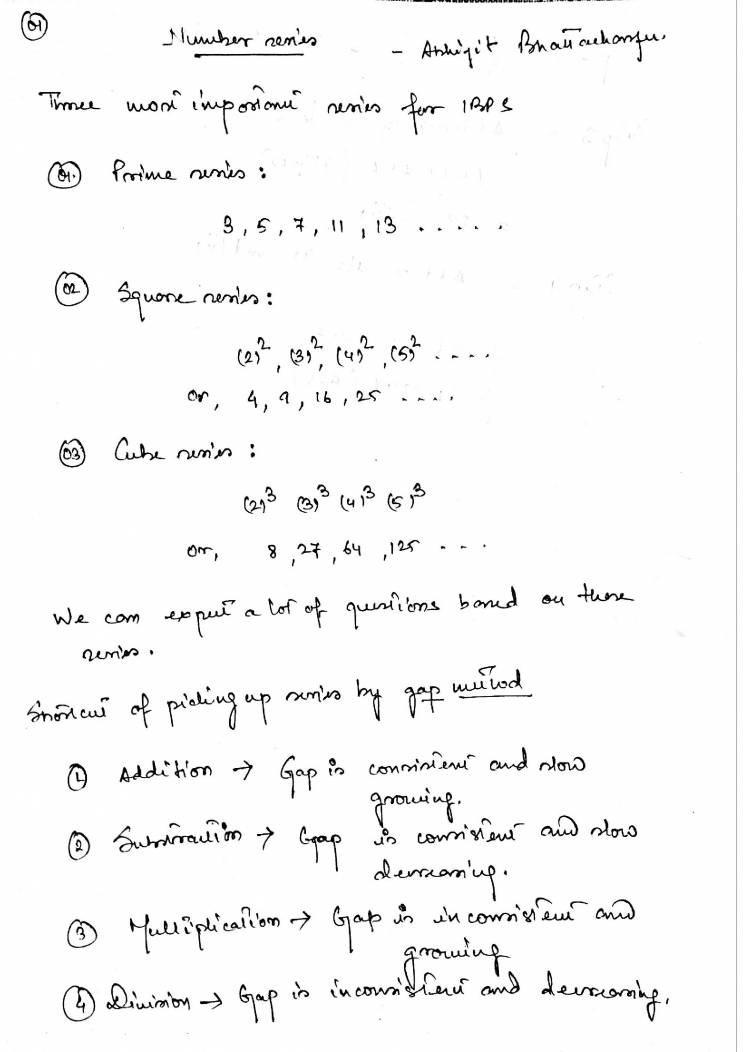 01
Number series - Abhijit Bhattacharjee.
Three most important series for IBPS
01. Prime series :
3, 5, 7, 11, 13 .....
02 Square series :
(2)², (3)², (4)², (5)² ....
or, 4, 9, 16, 25 .....
03 Cube series :
(2)³ (3)³ (4)³ (5)³
or, 8, 27, 64, 125 ...
We can expect a lot of questions based on these
series.
Shortcut of picking up series by gap method
1 Addition → Gap is consistent and slow
growing.
2 Substraction → Gap is consistent and slow
decreasing.
3 Multiplication → Gap is inconsistent and
growing
4 Division → Gap is inconsistent and decreasing.